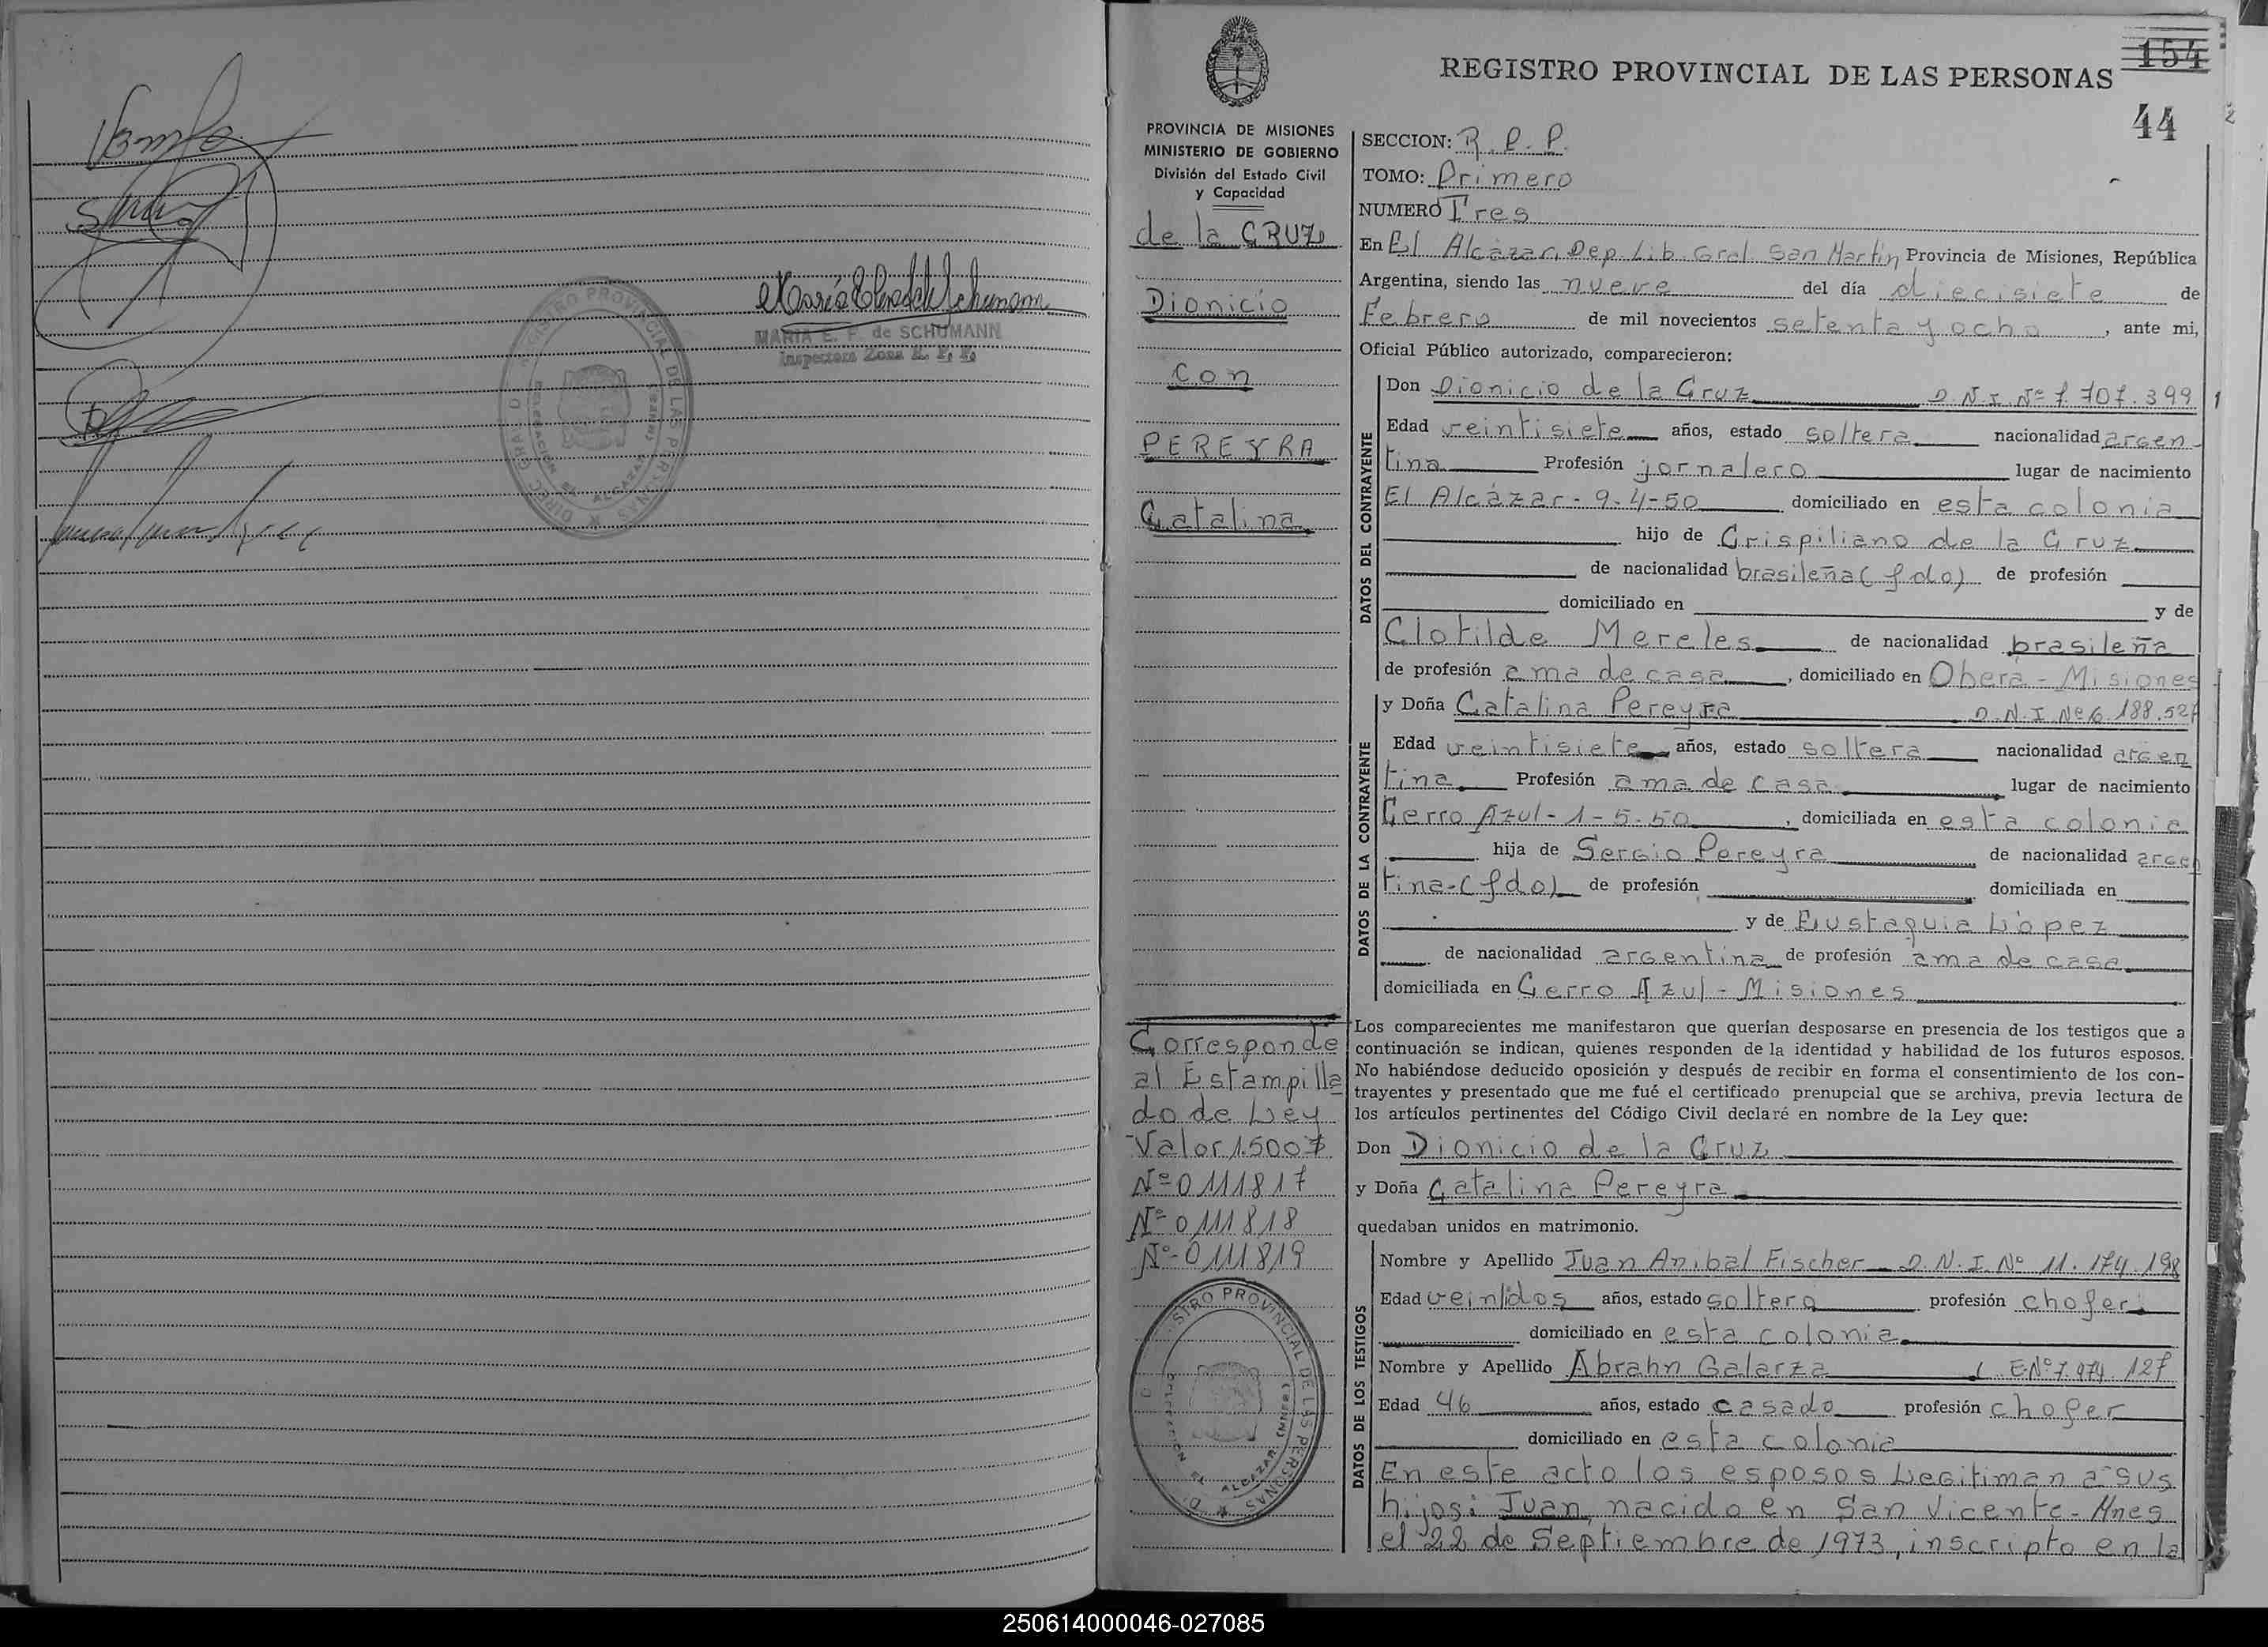 MARIA E. P. de SCHUMANN
Inspectora Zona R. P. P.
REGISTRO PROVINCIAL DE LAS PERSONAS
EL ALCAZAR
154
REGISTRO PROVINCIAL DE LAS PERSONAS
44
PROVINCIA DE MISIONES
MINISTERIO DE GOBIERNO
División del Estado Civil
y Capacidad
de la CRUZ
Dionicio
con
PEREYRA
Catalina
Corresponde
al Estampilla
do de Ley
Valor 1.500$
Nº 0111817
Nº 0111818
Nº 0111819
SECCION: R. P. P.
TOMO: Primero
NUMERO Tres
En El Alcázar, Dep. Lib. Gral San Martín Provincia de Misiones, República
Argentina, siendo las nueve del día diecisiete de
Febrero de mil novecientos setenta y ocho, ante mi,
Oficial Público autorizado, comparecieron:
DATOS DEL CONTRAYENTE
Don Dionicio de la Cruz D.N.I. Nº 7.707.399
Edad veintisiete años, estado soltero nacionalidad argen-
tina Profesión jornalero lugar de nacimiento
El Alcázar - 9-4-50 domiciliado en esta colonia
hijo de Crispiliano de la Cruz
de nacionalidad brasileña (fdo) de profesión
domiciliado en y de
Clotilde Mereles de nacionalidad brasileña
de profesión ama de casa, domiciliado en Oberá - Misiones
DATOS DE LA CONTRAYENTE
y Doña Catalina Pereyra D.N.I. Nº 6.188.527
Edad veintisiete años, estado soltera nacionalidad argen
tina Profesión ama de casa lugar de nacimiento
Cerro Azul - 1-5-50, domiciliada en esta colonia
hija de Sergio Pereyra de nacionalidad argen
tina - (fdo) de profesión domiciliada en
y de Eustaquia López
de nacionalidad argentina de profesión ama de casa
domiciliada en Cerro Azul - Misiones
Los comparecientes me manifestaron que querían desposarse en presencia de los testigos que a
continuación se indican, quienes responden de la identidad y habilidad de los futuros esposos.
No habiéndose deducido oposición y después de recibir en forma el consentimiento de los con-
trayentes y presentado que me fué el certificado prenupcial que se archiva, previa lectura de
los artículos pertinentes del Código Civil declaré en nombre de la Ley que:
Don Dionicio de la Cruz
y Doña Catalina Pereyra
quedaban unidos en matrimonio.
DATOS DE LOS TESTIGOS
Nombre y Apellido Juan Anibal Fischer D.N.I. Nº 11.174.198
Edad veintidos años, estado soltero profesión chofer
domiciliado en esta colonia
Nombre y Apellido Abrahn Galarza L.E.Nº 7.974.127
Edad 46 años, estado casado profesión chofer
domiciliado en esta colonia
En este acto los esposos Legitiman a sus
hijos: Juan, nacido en San Vicente - Mnes
el 22 de Septiembre de 1973, inscripto en la
REGISTRO PROVINCIAL DE LAS PERSONAS
EL ALCAZAR
250614000046-027085